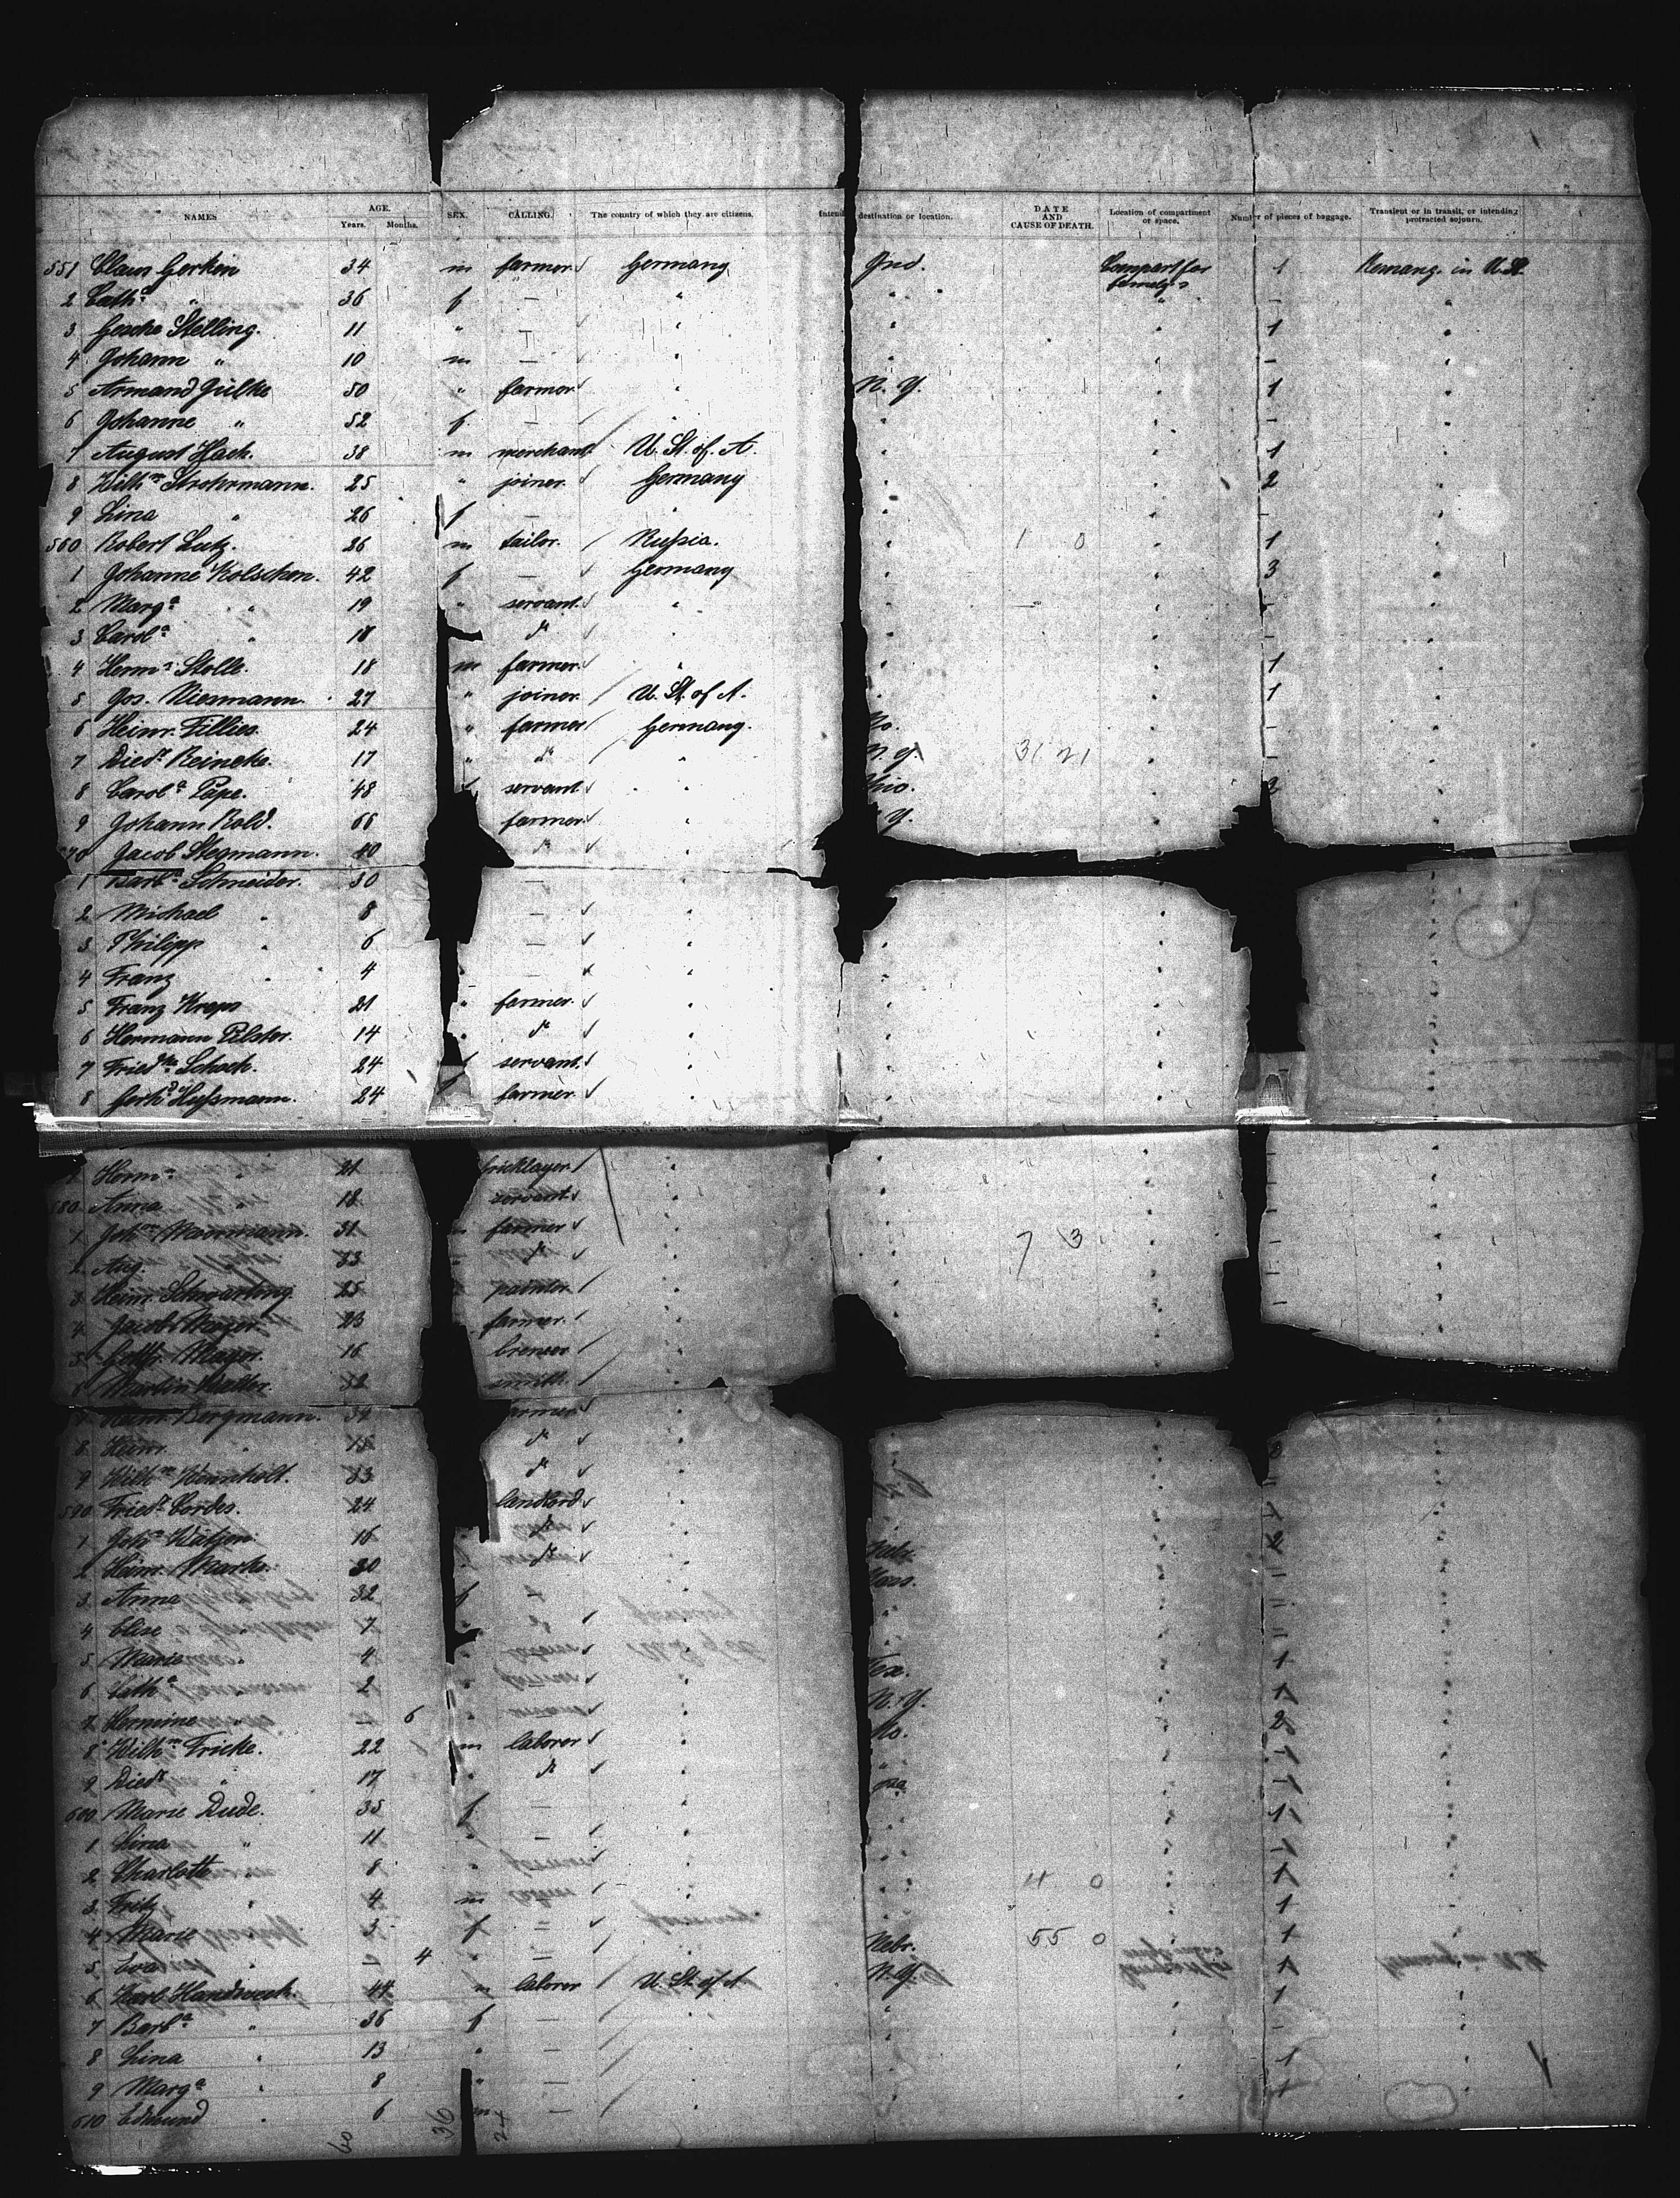 NAMES AGE. Years. Months. SEX. CALLING. The country of which they are citizens. destination or location. DATE AND CAUSE OF DEATH. Location of compartment or space. Number of pieces of baggage. Transient or in transit, or intending protracted sojourn.
551 Claus Gerken 34 m farmer Germany Ind. Compart for 1 in U.St.
2 Cath.a " 36 f — " " " — "
3 Gesche Stelling. 11 " — " " " 1 "
4 Johann " 10 m — " " " — "
5 Armand Gülke 50 " farmer " N.Y. " 1 "
6 Johanne " 52 f. — " " " — "
7 August Hach. 38 m merchant U.St.of.A. " " 1 "
8 Wilh.m Strohrmann. 25 " joiner. Germany " " 2 "
9 Lina " 26 f — " " " — "
560 Robert Lutz. 26 m tailor. Rußia. " 1 0 " 1 "
1 Johanne Kolschen. 42 f — Germany " " 3 "
2 Marg.a " 19 " servant. " " " — "
3 Carol.a " 18 do " " " — "
4 Herm.n Stolle. 18 m farmer. " " " 1 "
5 Jos. Niemann. 27 " joiner. U.St.of A. " " 1 "
6 Heinr. Fillies. 24 " farmer Germany. " — "
7 Died.r Reineke. 17 " do " N.Y. 31 21 " — "
8 Carol.a Pape. 48 f servant " " "
9 Johann Bold. 66 farmer " Y. "
70 Jacob Stegmann. 40 do "
1 Barb.a Schneider. 30 — "
2 Michael " 8 — " " "
3 Philipp " 6 — " " " "
4 Franz " 4 — " " " "
5 Franz Kreps 21 " farmer. " " " "
6 Hermann Pilster. 14 " do " " " "
7 Schoch. 24 f servant. " " " "
8 Gerh.d Hußmann. 24 farmer. " " " "
Herm.n " 21 bricklayer " " " — "
580 Anna " 18 servant " " " — "
1 Joh.nn Moormann. 31 farmer " " 7 3 " — "
2 Aug. " 33 do " " " — "
3 Heinr. Schwarting. 25 painter. " " " — "
4 Jacob Meyer 23 farmer. " " "
5 Mayer. 16 brewer " " "
6 Martin Walter. 32 smith. " "
Heinr. Bergmann. 34 farmer " " "
8 Heinr. " 15 do " " " "
9 Wilh.m 33 do " " " "
590 Fried.r Cordes. 24 landlord " " "
1 Joh.n Wätjen. 16 do " Nebr. " 2 "
2 Heinr. Marks. 30 do " " — "
3 Anna 32 f — " " " "
4 Elise " 7 " " " " "
5 Marie " 4 " " Tex. " 1 "
6 Cath.a 2 " " N.Y. " 1 "
7 Hermine " — 6 " " Mo. " 2 "
8 Wilh.m Fricke. 22 m laborer " " " — "
9 Died.r " 17 " do " " — "
600 Marie Dude. 35 f — " " " 1 "
1 Lina " 11 " — " " " — "
2 Charlotte " 8 " " " 4 0 " 1 "
3 Fritz " 4 m " " " 1 "
4 Marie " 3 f — " Nebr. 55 0 " 1 "
5 Eva " — 4 " — " N.Y. 1
6 Carl Handwerk. 44 m laborer U.St.of A. " " 1 "
7 Barb.a " 36 f — " " " — "
8 Lina " 13 " — " " " 1 "
9 Marg.a " 8 " — " " " 1 "
610 Edmund " 6 m — " " " "
60 36 24